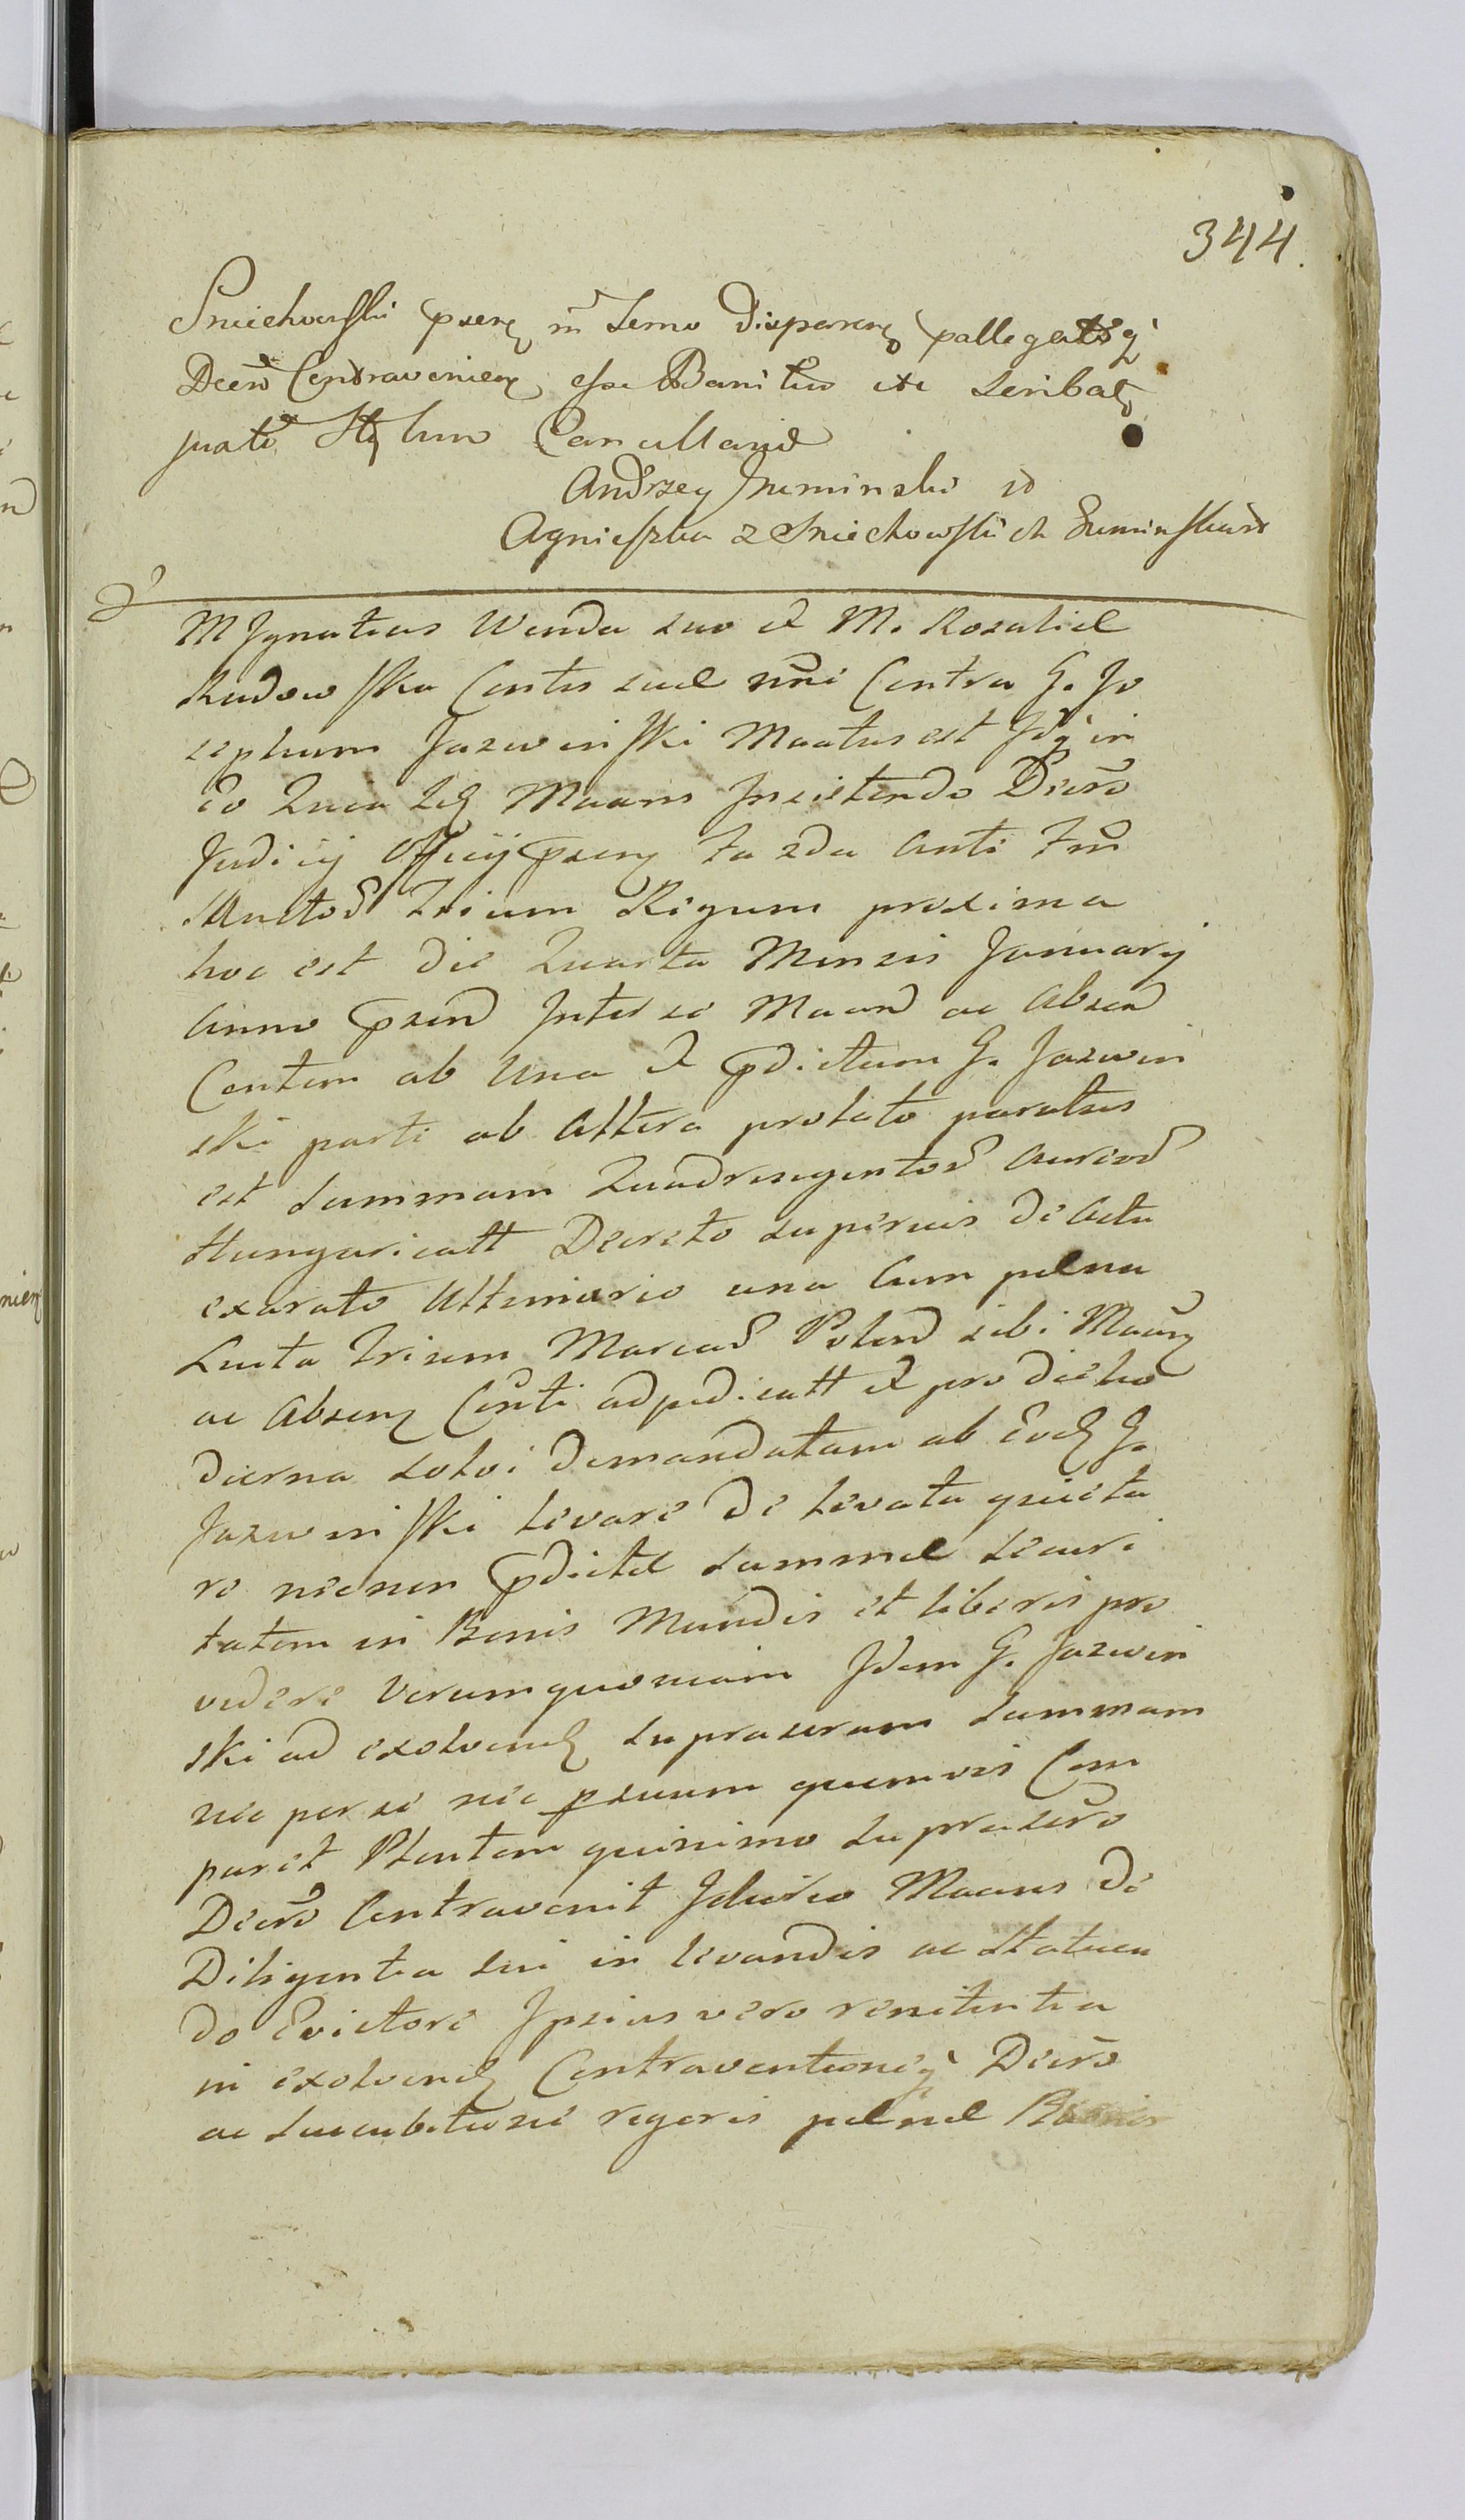 344.
Sniechowski psens in Termo disparens pallegatoq
Decro Contraveniens esse Banitum etc scribat
juxta Stylum Cancellariæ
Andrzey Zuminski
Agnieszka z Sniechowskich Zuminska
M Ignatius Wenda suo et M. Rosaliæ
Radowska Contis suæ nni Contra G. Jo
sephum Jazwinski Maatus est Idq in
eo Quia Idem Maans Insistendo Decro
Judicij Officij psens Tazda Anti Fm
Sanctor Trium Regum proxima
hoc est die Quarta Mensis Januarij
Anno psen Inter se Maan ac Absen
Contem ab Una et pdictum G. Jazwin
ski parte ab Altera prolato paratus
est Summam Quadringentor Aureor
Hungaricall Decreto superius de Actu
exarato Ultimario una Cum pæna
Lucta Trium Marcar Polon sibi Maan
ac Absen Conti adjudicatt et pro die ho
dierna solvi demandatam ab Eodem G.
Jazwinski levare de levata quieta
re necnon pdictæ Summæ Securi
tatem in Bonis Mundis et liberis pro
videre Verum quoniam Idem G. Jazwin
ski ad exolvendam suprascram Summam
nec per se nec p suum quemvis Com
paret Plentem quinimo suprascro
Decro Contravenit Idcirco Maans de
Diligentia sui in levandis ac Statuen
do Evictore Ipsius vero renitentia
in exolvendam Contraventioneq Decro
ac Succubitione rigoris pænæ